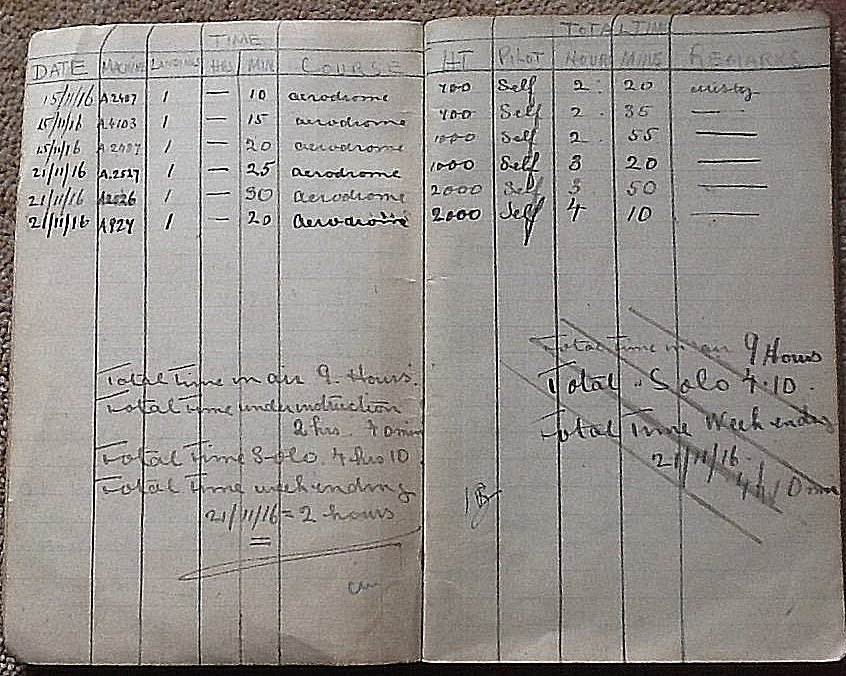 TIME TOTAL TIME
DATE MACHINE LANDING HRS MIN COURSE HT PILOT HOUR MINS REMARKS
15/11/16 A2407 1 — 10 aerodrome 700 Self 2 : 20 misty
15/11/16 A4103 1 — 15 aerodrome 700 Self 2 . 35 —
15/11/16 1 — 20 aerodrome 1000 Self 2 . 55 —
21/11/16 A.2527 1 — 25 aerodrome 1000 Self 3 20 —
21/11/16 1 — 30 aerodrome 2000 Self 3 . 50 —
21/11/16 1 — 20 aerodrome 2000 Self 4 10 —
Total Time in air 9. Hours.
Total Time under instruction
2 hrs. 40 min
Total Time Solo. 4 hrs 10
Total Time week ending
21/11/16 = 2 hours
Total Time in air 9 Hours
Total . Solo 4.10.
Total Time Week ending
21/11/16.
4h 10 min